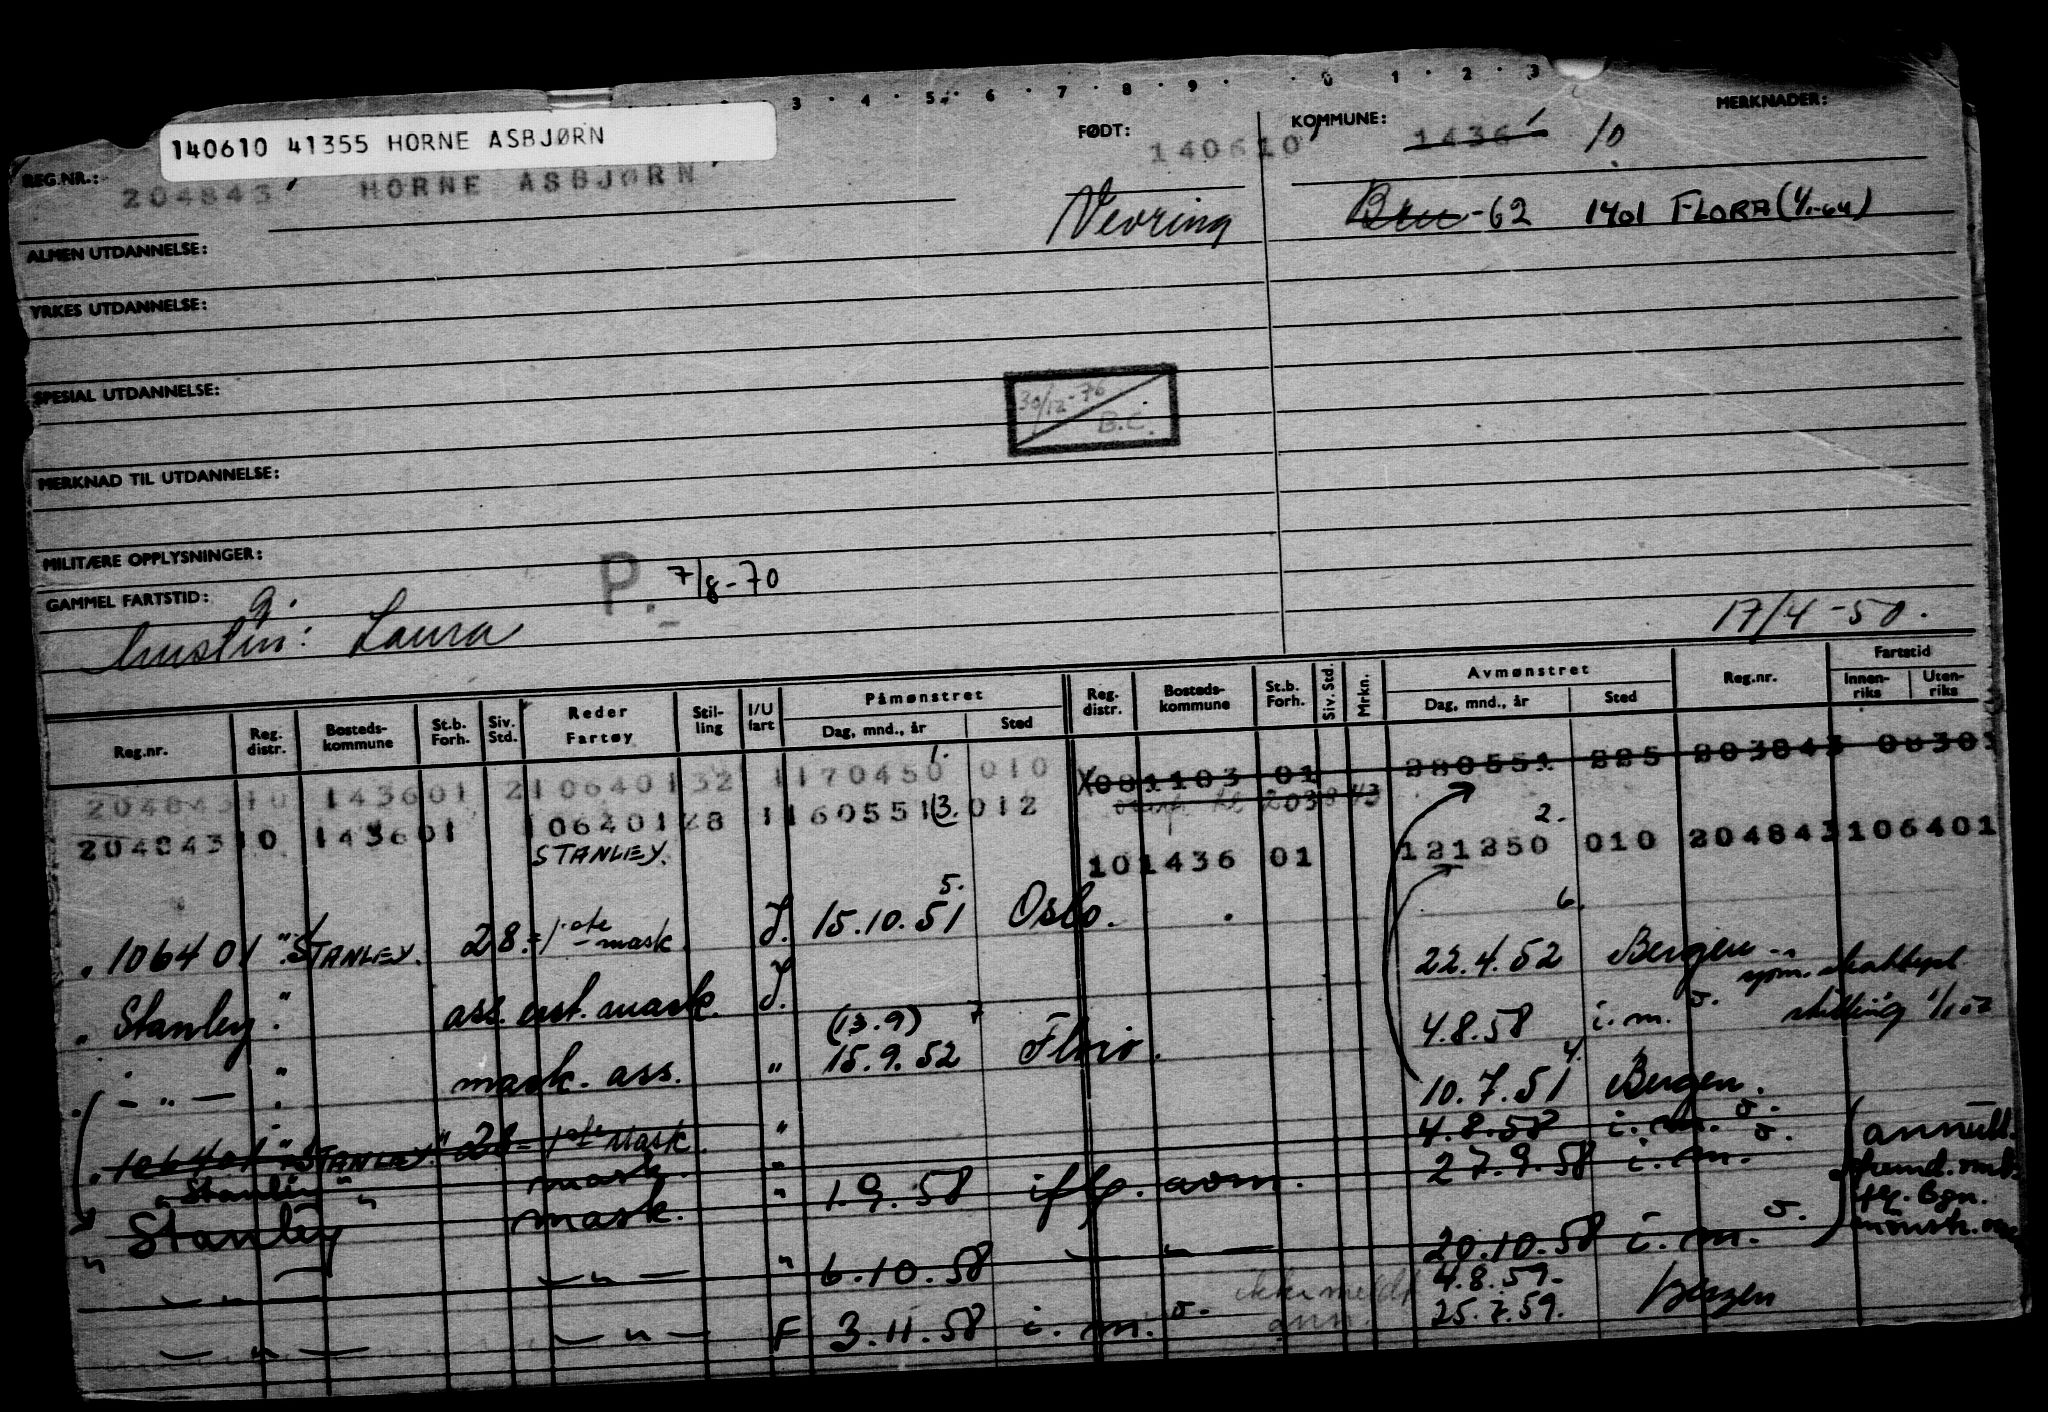 3 4 5 6 7 8 9 0 1 2 3
140610 41355 HORNE ASBJØRN
FØDT: 140610
KOMMUNE: 1436 10
MERKNADER:
REG.NR.: 204843 HORNE ASBJØRN
Nevring
Bru -62 1401 FLORA (1/1-64)
ALMEN UTDANNELSE:
YRKES UTDANNELSE:
SPESIAL UTDANNELSE:
30/12-76 B.C.
MERKNAD TIL UTDANNELSE:
MILITÆRE OPPLYSNINGER:
P. 7/8-70
GAMMEL FARTSTID: g.
hustru: Laura
17/4-50.
Reg.nr. Reg. distr. Bosteds-kommune St.b. Forh. Siv. Std. Reder Fartøy Stil-ling I/U fart Påmønstret Dag, mnd., år Sted Reg. distr. Bosteds-kommune St.b. Forh. Siv. Std. Mrkn. Avmønstret Dag, mnd., år Sted Reg.nr. Fartstid Innen-riks Uten-riks
204843 10 1436 01 2 106401 32 1 170450 1. 010 X 081103 01 280551 225 203843 08303
204843 10 1436 01 106401 28 1 160551 (3. 012 203843
STANLEY. 10 1436 01 121250 2. 010 204843 106401
" 106401 " STANLEY. 28 = 1ste mask J. 15.10.51 5. Oslo. 22.4.52 6. Bergen
" Stanley " ass. mask. J. 4.8.58 i.m. stilling
" - " - " mask. ass. " (13.9) 15.9.52 7 Florø. 10.7.51 4. Bergen.
" 106401 " STANLEY " 28 = 1ste mask. " 4.8.58 i.m. annull.
" Stanley " mask. " 27.9.58 i.m.
" Stanley " mask. " 1.9.58 ifg. aom. Bgn.
- " - - " - " 6.10.58 - " - 20.10.58 i.m. mønstr.
ikke meldt 4.8.59.
- " - - " - F 3.11.58 i.m. ann. 25.7.59. Bergen